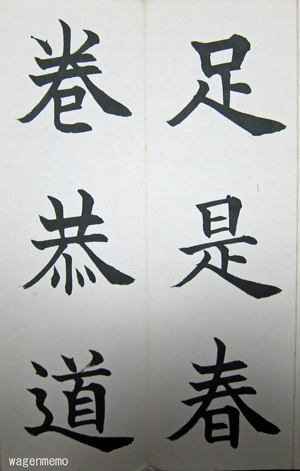 足是春
巻恭道
wagenmemo